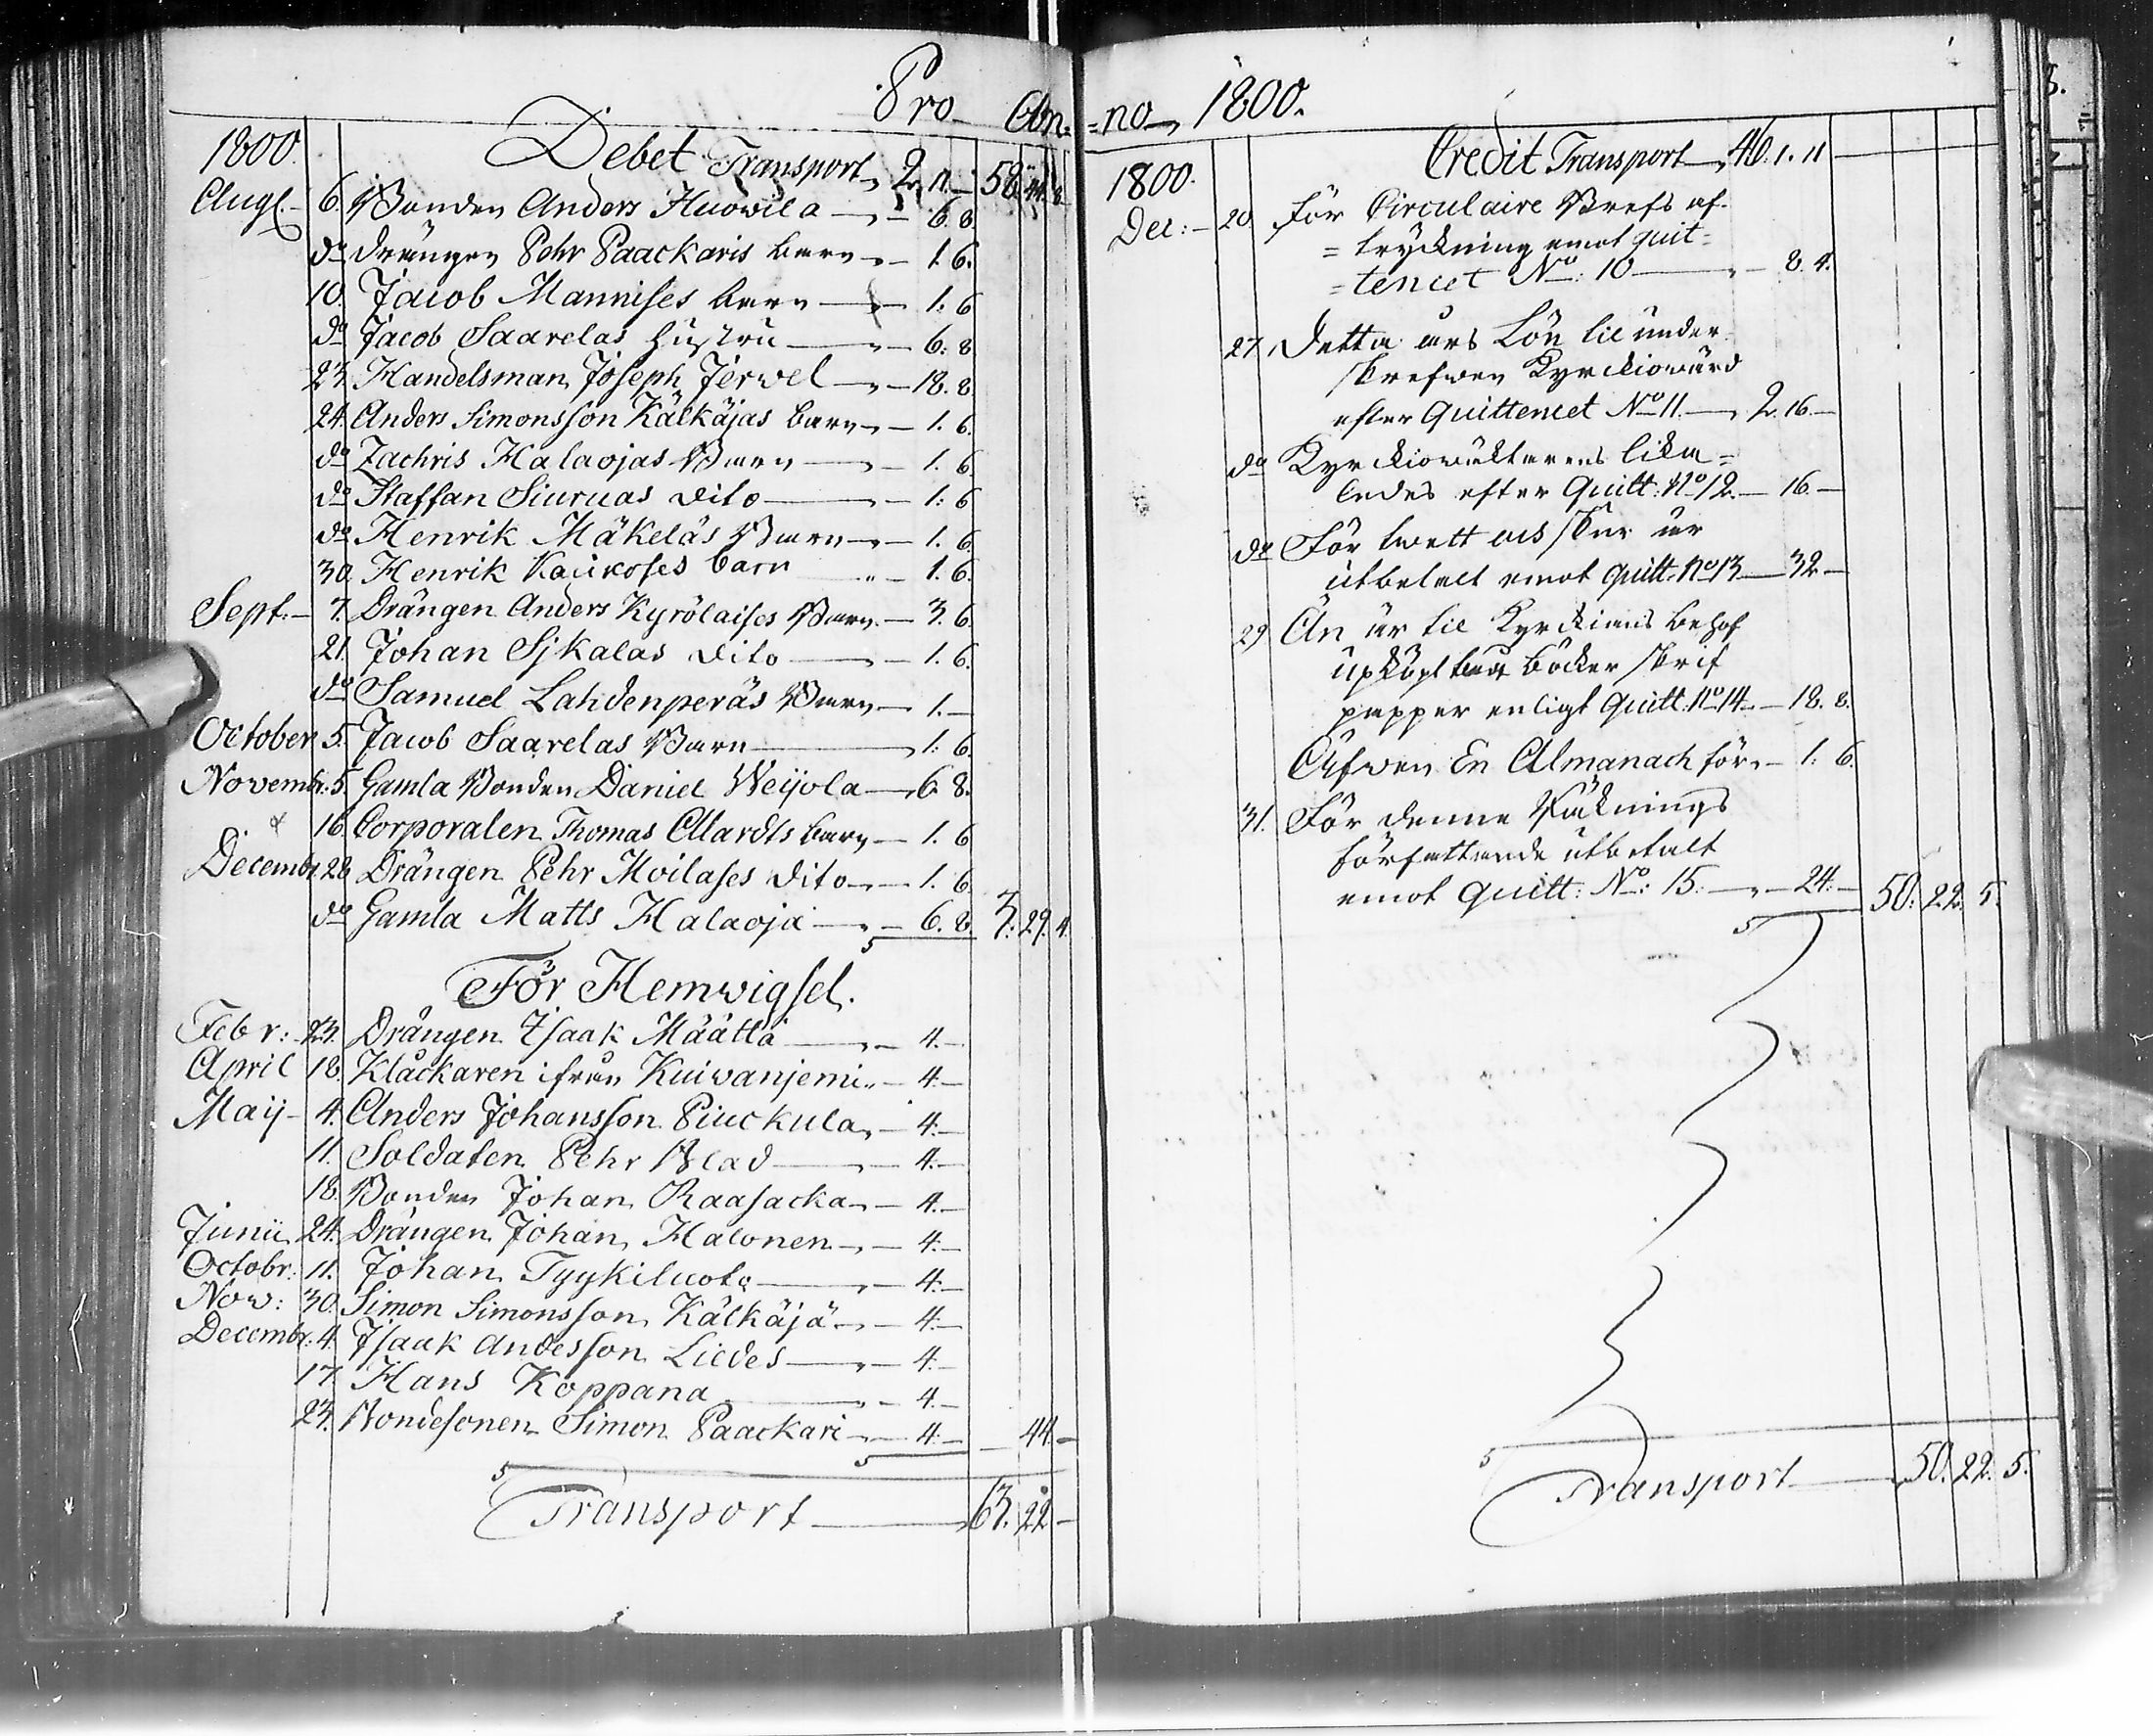 Pro An=
1800. Debet Transport 2. 11. — 58. 44. 8.
Aug. — 6. Bonden Anders Huowila — 6. 8.
do drängen Pehr Paackaris barn — 1. 6.
10. Jacob Mannises barn — 1: 6
do Jacob Saarelas hustru — 6: 8
23. Handelsman Joseph Jerwel — 18. 8
24. Anders Simonsson Kälkäjas barn — 1. 6.
do Zachris Halaojas Barn — 1. 6
do Staffan Siuruas dito — 1: 6
do Henrik Mäkeläs Barn — 1. 6.
30. Henrik Kaukoses barn — 1. 6.
Sept. — 7. Drängen Anders Kyrölaises Barn — 3. 6.
21. Johan Sjkalas dito — 1. 6.
do Samuel Lahdenperäs Barn — 1. —
October 5. Jacob Saarelas Barn — 1: 6.
Novembr: 5. Gamla Bonden Daniel Weijola — 6. 8.
16. Corporalen Thomas Allardts barn — 1. 6
Decembr 28 Drängen Pehr Moilases dito — 1. 6.
do Gamla Matts Halaoja — 6. 8. 3: 29. 4.
För Hemwigsel.
Febr: 23. Drängen Isaak Määttä — 4. —
April 18. Klåckaren ifrån Kuivanjemi — 4. —
Maij — 4. Anders Johansson Piuckula — 4. —
11. Soldaten Pehr Blad — 4. —
18. Bonden Johan Raasacka — 4. —
Junii 24. Drängen Johan Halonen — 4. —
Octobr: 11. Johan Tyykiluoto — 4. —
Now: 30. Simon Simonsson Kälkäjä — 4. —
Decembr: 4. Isaak Andesson Liedes — 4. —
17. Hans Koppana — 4. —
23. Bondesonen Simon Paackari — 4. — — 44. —
Transport — 63. 22 —
=no 1800.
1800. Credit Transport 46. 1. 11 —
Dec: — 20. För Circulaire Brefs af-
=tryckning emot quit=
=tencet No: 10 — 8. 4.
27. Detta års Lön til under
skrefwen Kyrckiowärd
efter Quittencet No 11. — 2. 16 —
do Kyrckiowäktarens lika=
ledes efter Quitt: No 12. — 16 —
do För twett
utbetalt emot quitt. No 13 — 32 —
29. Än är til Kyrckians behof
upköpt böcker skrif
papper enligt Quitt. No 14 — 18. 8.
Äfwen En Almanach för — 1: 6.
31. För denne Räknings
författande utbetalt
emot quitt: No: 15. — 24. — 50. 22. 5.
Transport — 50. 22. 5.